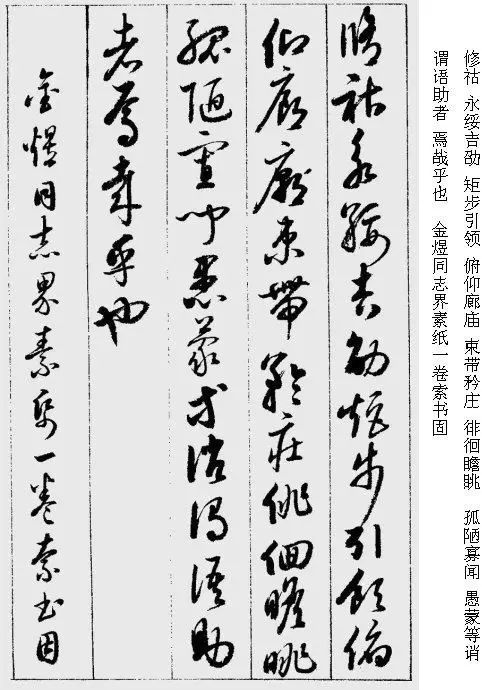 修祜 永绥吉劭 矩步引领 俯仰廊庙 束带矜庄 徘徊瞻眺 孤陋寡闻 愚蒙等诮
谓语助者 焉哉乎也 金煜同志界素纸一卷索书因
脩祜永綏吉劭矩步引領俯
仰廊廟束帶矜庄徘徊瞻眺
孤陋寡聞愚蒙等誚謂語助
者焉哉乎也
金煜同志界素紙一卷索書因